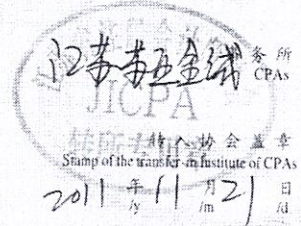 江苏苏亚金诚 务所
CPAs
JICPA
转入协会盖章
Stamp of the transfer-in Institute of CPAs
2011 年 11 月 21 日
/y /m /d